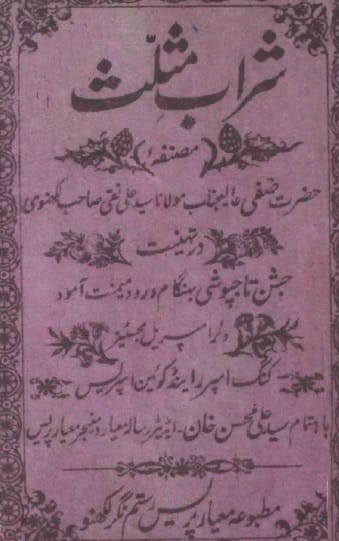 شراب مثلّث
(مصنفۂ)
حضرت صفی عالیجناب مولانا سید علی نقی صاحب لکھنوی
در تہنیت
جشن تاجپوشی ہنگام ورود میمنت آمود
دیر امپیریل مجسٹیز
کنگ امپرر اینڈ کوئین امپریس
باہتمام سید علی محسن خان۔ ایڈیٹر رسالہ معیار و منیجر معیار پریس
مطبوعہ معیار پریس رستم نگر لکھنو